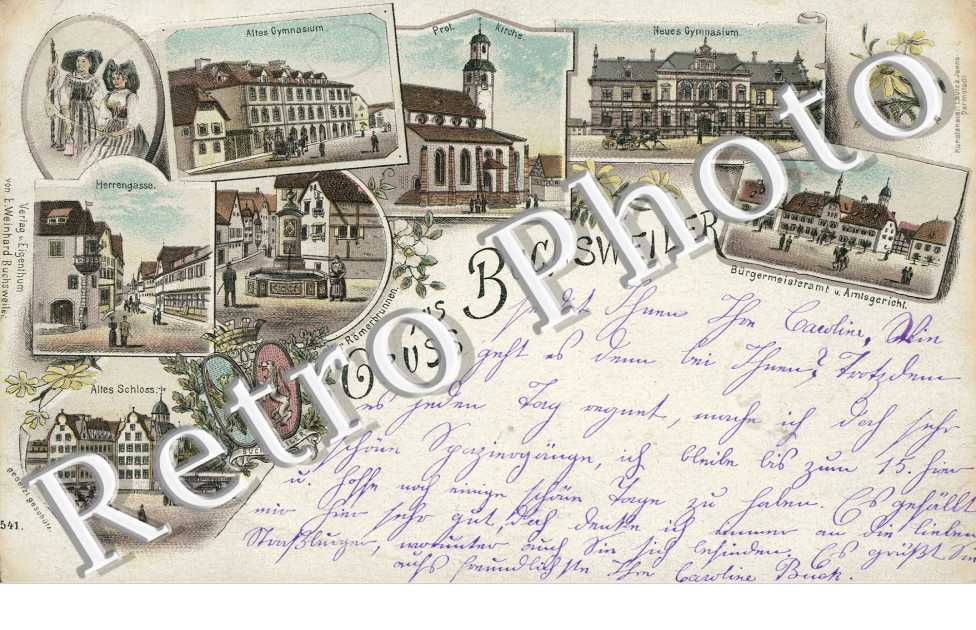 Altes Gymnasium
Prot. Kirche.
Neues Gymnasium.
Herrengasse.
Verlag u. Eigenthum
von E. Weinhard Buchsweiler.
Römerbrunnen.
Gruss aus Buchsweiler
Bürgermeisteramt u. Amtsgericht.
Altes Schloss.
541.
Retro Photo
sendet Ihnen Ihre Caroline, Wie
geht es denn bei Ihnen? Trotzdem
es jeden Tag regnet, mache ich doch sehr
schöne Spaziergänge, ich bleibe bis zum 15. hier
u. hoffe noch einige schöne Tage zu haben. Es gefällt
mir hier sehr gut, doch denke ich immer an die lieben
Straßburger, worunter auch Sie sich befinden. Es grüßt Sie
aufs freundlichste Ihre Caroline Buck.